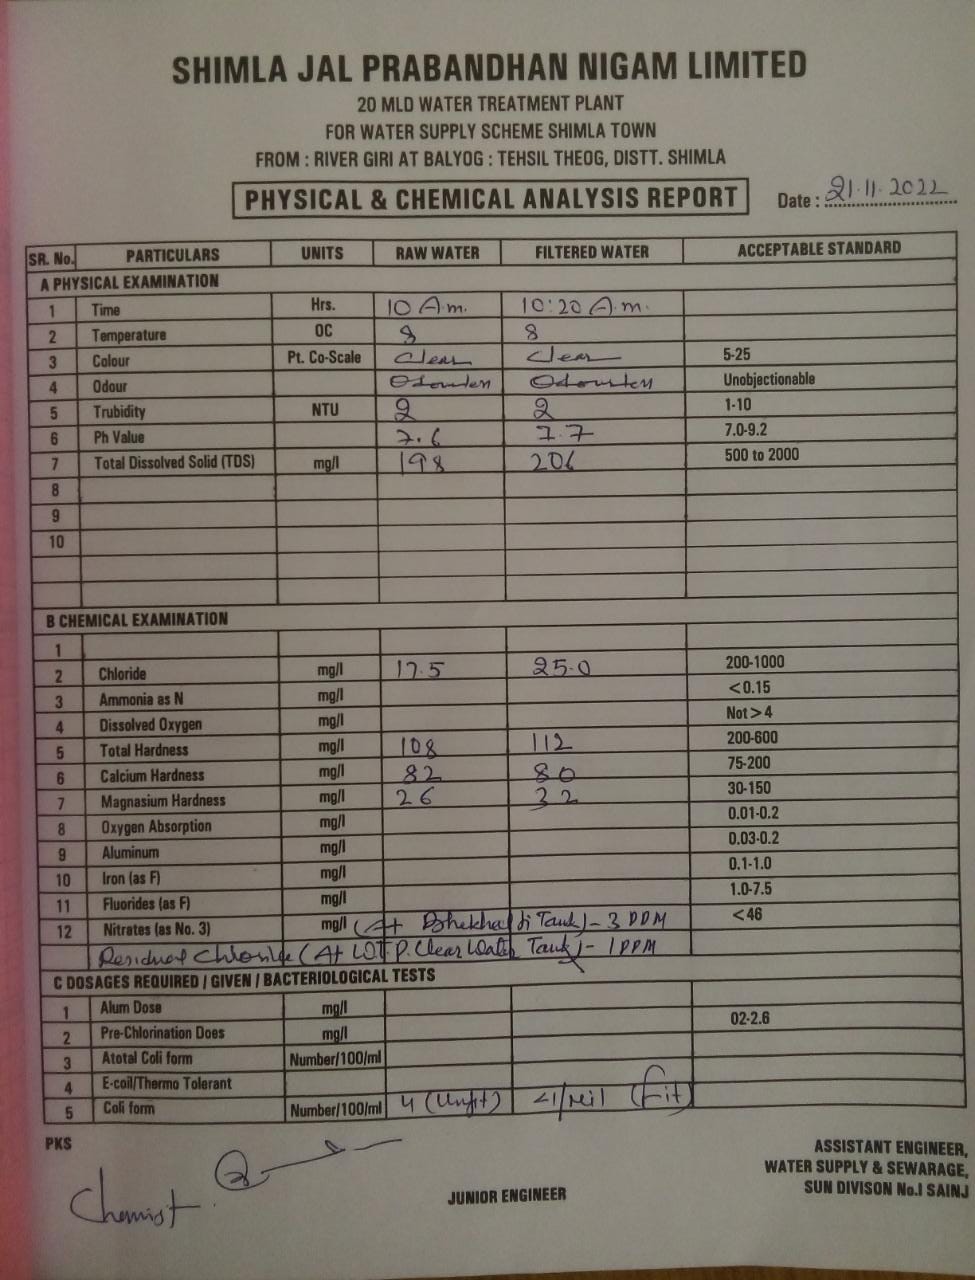 SHIMLA JAL PRABANDHAN NIGAM LIMITED
20 MLD WATER TREATMENT PLANT
FOR WATER SUPPLY SCHEME SHIMLA TOWN
FROM : RIVER GIRI AT BALYOG : TEHSIL THEOG, DISTT. SHIMLA
PHYSICAL & CHEMICAL ANALYSIS REPORT Date : 21.11.2022
SR. No. PARTICULARS UNITS RAW WATER FILTERED WATER ACCEPTABLE STANDARD
A PHYSICAL EXAMINATION
1 Time Hrs. 10 A.m. 10:20 A.m.
2 Temperature OC 8 8
3 Colour Pt. Co-Scale Clear Clear 5-25
4 Odour Odourless Odourless Unobjectionable
5 Trubidity NTU 2 2 1-10
6 Ph Value 7.6 7.7 7.0-9.2
7 Total Dissolved Solid (TDS) mg/l 198 206 500 to 2000
8
9
10
B CHEMICAL EXAMINATION
1
2 Chloride mg/l 17.5 25.0 200-1000
3 Ammonia as N mg/l <0.15
4 Dissolved Oxygen mg/l Not>4
5 Total Hardness mg/l 108 112 200-600
6 Calcium Hardness mg/l 82 80 75-200
7 Magnasium Hardness mg/l 26 32 30-150
8 Oxygen Absorption mg/l 0.01-0.2
9 Aluminum mg/l 0.03-0.2
10 Iron (as F) mg/l 0.1-1.0
11 Fluorides (as F) mg/l 1.0-7.5
12 Nitrates (as No. 3) mg/l (At Dhekhaldi Tank) - 3 PPM <46
Residual Chloride (At W.T.P. Clear Water Tank) - 1 PPM
C DOSAGES REQUIRED / GIVEN / BACTERIOLOGICAL TESTS
1 Alum Dose mg/l
2 Pre-Chlorination Does mg/l 02-2.6
3 Atotal Coli form Number/100/ml
4 E-coil/Thermo Tolerant
5 Coli form Number/100/ml 4 (Unfit) <1/Nil (Fit)
PKS
Chemist
JUNIOR ENGINEER
ASSISTANT ENGINEER,
WATER SUPPLY & SEWARAGE,
SUN DIVISON No.I SAINJ